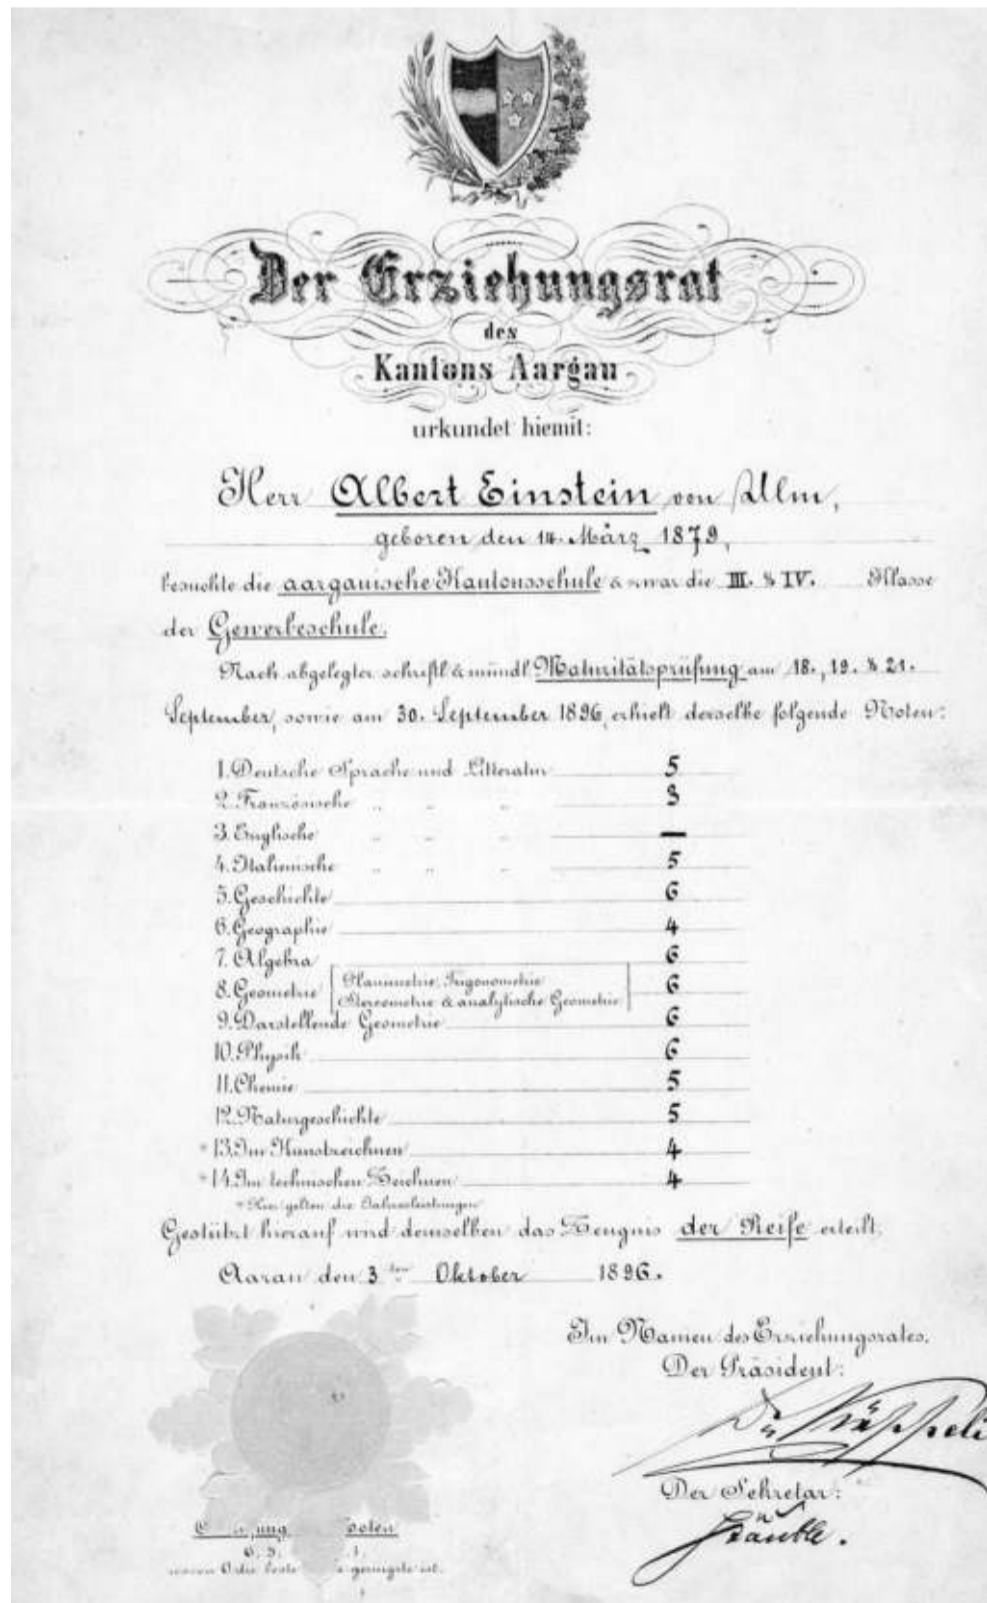 Der Erziehungsrat
des
Kantons Aargau
urkundet hiemit:
Herr Albert Einstein von Ulm,
geboren den 14. März 1879,
besuchte die aargauische Kantonsschule & zwar die III. & IV. Klasse
der Gewerbeschule.
Nach abgelegter schriftl. & mündl. Maturitätsprüfung am 18., 19. & 21.
September, sowie am 30. September 1896, erhielt derselbe folgende Noten:
1. Deutsche Sprache und Litteratur 5
2. Französische " " " 3
3. Englische " " " —
4. Italienische " " " 5
5. Geschichte 6
6. Geographie 4
7. Algebra 6
8. Geometrie Planimetrie, Trigonometrie 6
Stereometrie & analytische Geometrie
9. Darstellende Geometrie 6
10. Physik 6
11. Chemie 5
12. Naturgeschichte 5
* 13. Im Kunstzeichnen 4
* 14. Im technischen Zeichnen 4
* Hier gelten die Jahresleistungen.
Gestützt hierauf wird demselben das Zeugnis der Reife erteilt.
Aarau den 3ten Oktober 1896.
Im Namen des Erziehungsrates,
Der Präsident:
Käppeli
Der Sekretär:
Stäuble.
6, 5, 1,
wovon 6 die beste geringste ist.